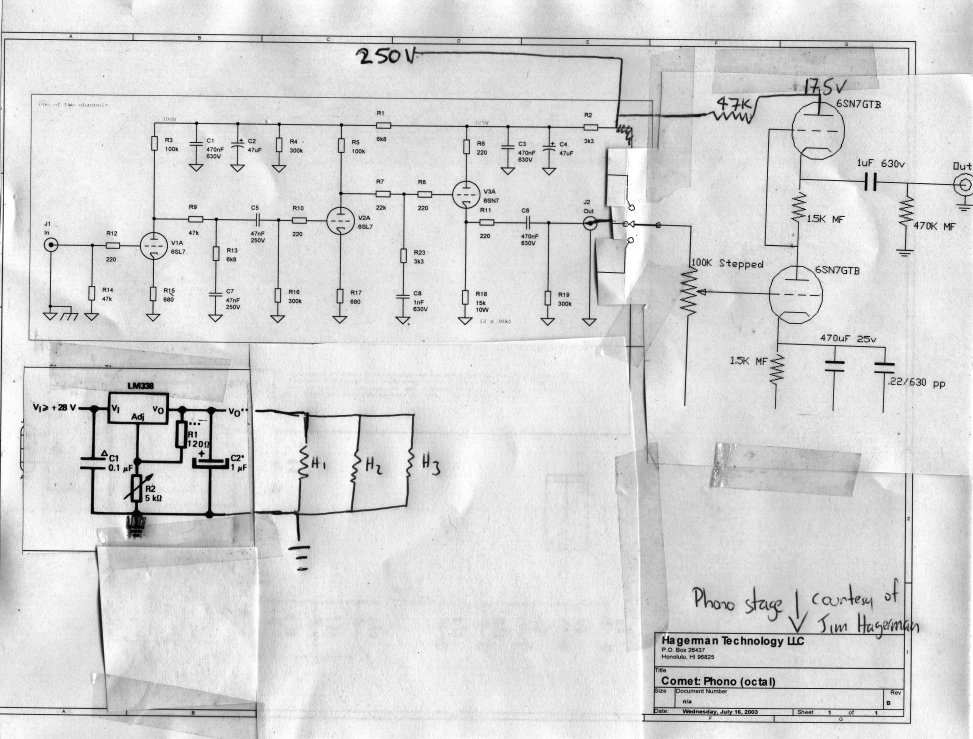 250V
One of two channels
175V
47K
6SN7GTB
1uF 630v
Out
1.5K MF
470K MF
100K Stepped
6SN7GTB
470uF 25v
1.5K MF
.22/630 pp
R1
6k8
R2
3k3
R3
100k
C1
470nF
630V
C2
47uF
R4
300k
R5
100k
R6
220
C3
470nF
630V
C4
47uF
R7
22k
R8
220
V3A
6SN7
J2
Out
R9
47k
C5
47nF
250V
R10
220
V2A
6SL7
R11
220
C6
470nF
630V
J1
In
R12
220
V1A
6SL7
R13
6k8
R23
3k3
R14
47k
R15
680
C7
47nF
250V
R16
300k
R17
680
C8
1nF
630V
R18
15k
10W
R19
300k
LM338
VI ≥ +28 V
VI
VO
Adj
VO**
R1
120Ω
C1
0.1 µF
C2*
1 µF
R2
5 kΩ
H1
H2
H3
Phono stage courtesy of
Jim Hagerman
Hagerman Technology LLC
P.O. Box 26437
Honolulu, HI 96825
Title
Comet: Phono (octal)
Size Document Number Rev
n/a B
Date: Wednesday, July 16, 2003 Sheet 1 of 1